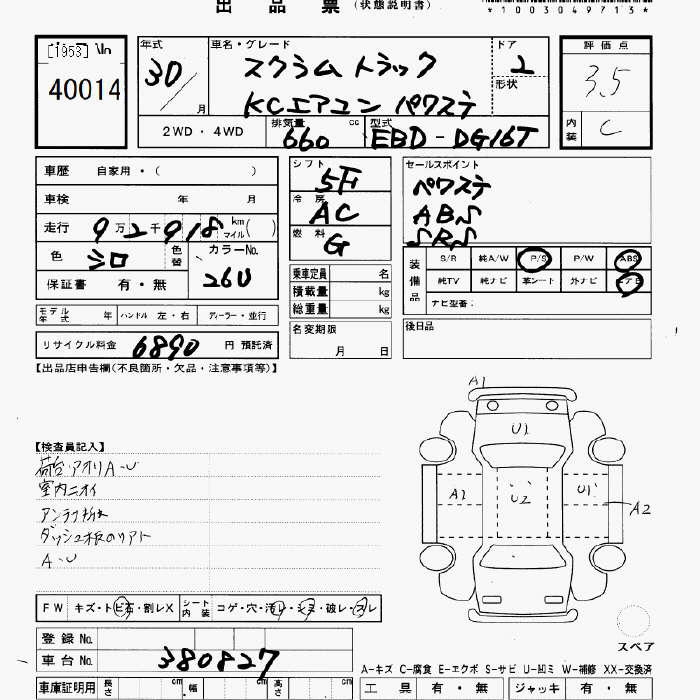 出品票 (状態説明書)
*1003049713*
[1953] Vln
40014
年式 30/ 月
車名・グレード スクラム トラック
KCエアコン パワステ
ドア 2
形状
評価点 3.5
内装 C
2WD・4WD 排気量 660 cc 型式 EBD-DG16T
車歴 自家用・( )
車検 年 月
走行 9万2千918 km マイル( )
色 シロ 色替 カラーNo. 26U
保証書 有・無
シフト 5F
冷房 AC
燃料 G
セールスポイント
パワステ
ABS
SRS
乗車定員 名
積載量 kg
総重量 kg
装備品 S/R 純A/W P/S P/W ABS
純TV 純ナビ 革シート 外ナビ エアB
ナビ型番:
モデル年式 年 ハンドル 左・右 ディーラー・並行
名変期限 月 日
後日品
リサイクル料金 6890 円 預託済
【出品店申告欄(不良箇所・欠品・注意事項等)】
A1
U1
A1 U2 U1 A2
【検査員記入】
荷台・アオリA-U
室内ニオイ
アンテナ折れ
ダッシュ板のリアト
A-U
FW キズ・トビ石・割レX シート内装 コゲ・穴・汚レ・シミ・破レ・スレ
スペア
登録No.
車台No. 380827
A-キズ C-腐食 E-エクボ S-サビ U-凹ミ W-補修 XX-交換済
車庫証明用 長さ cm 幅 cm 高さ cm
工具 有・無 ジャッキ 有・無